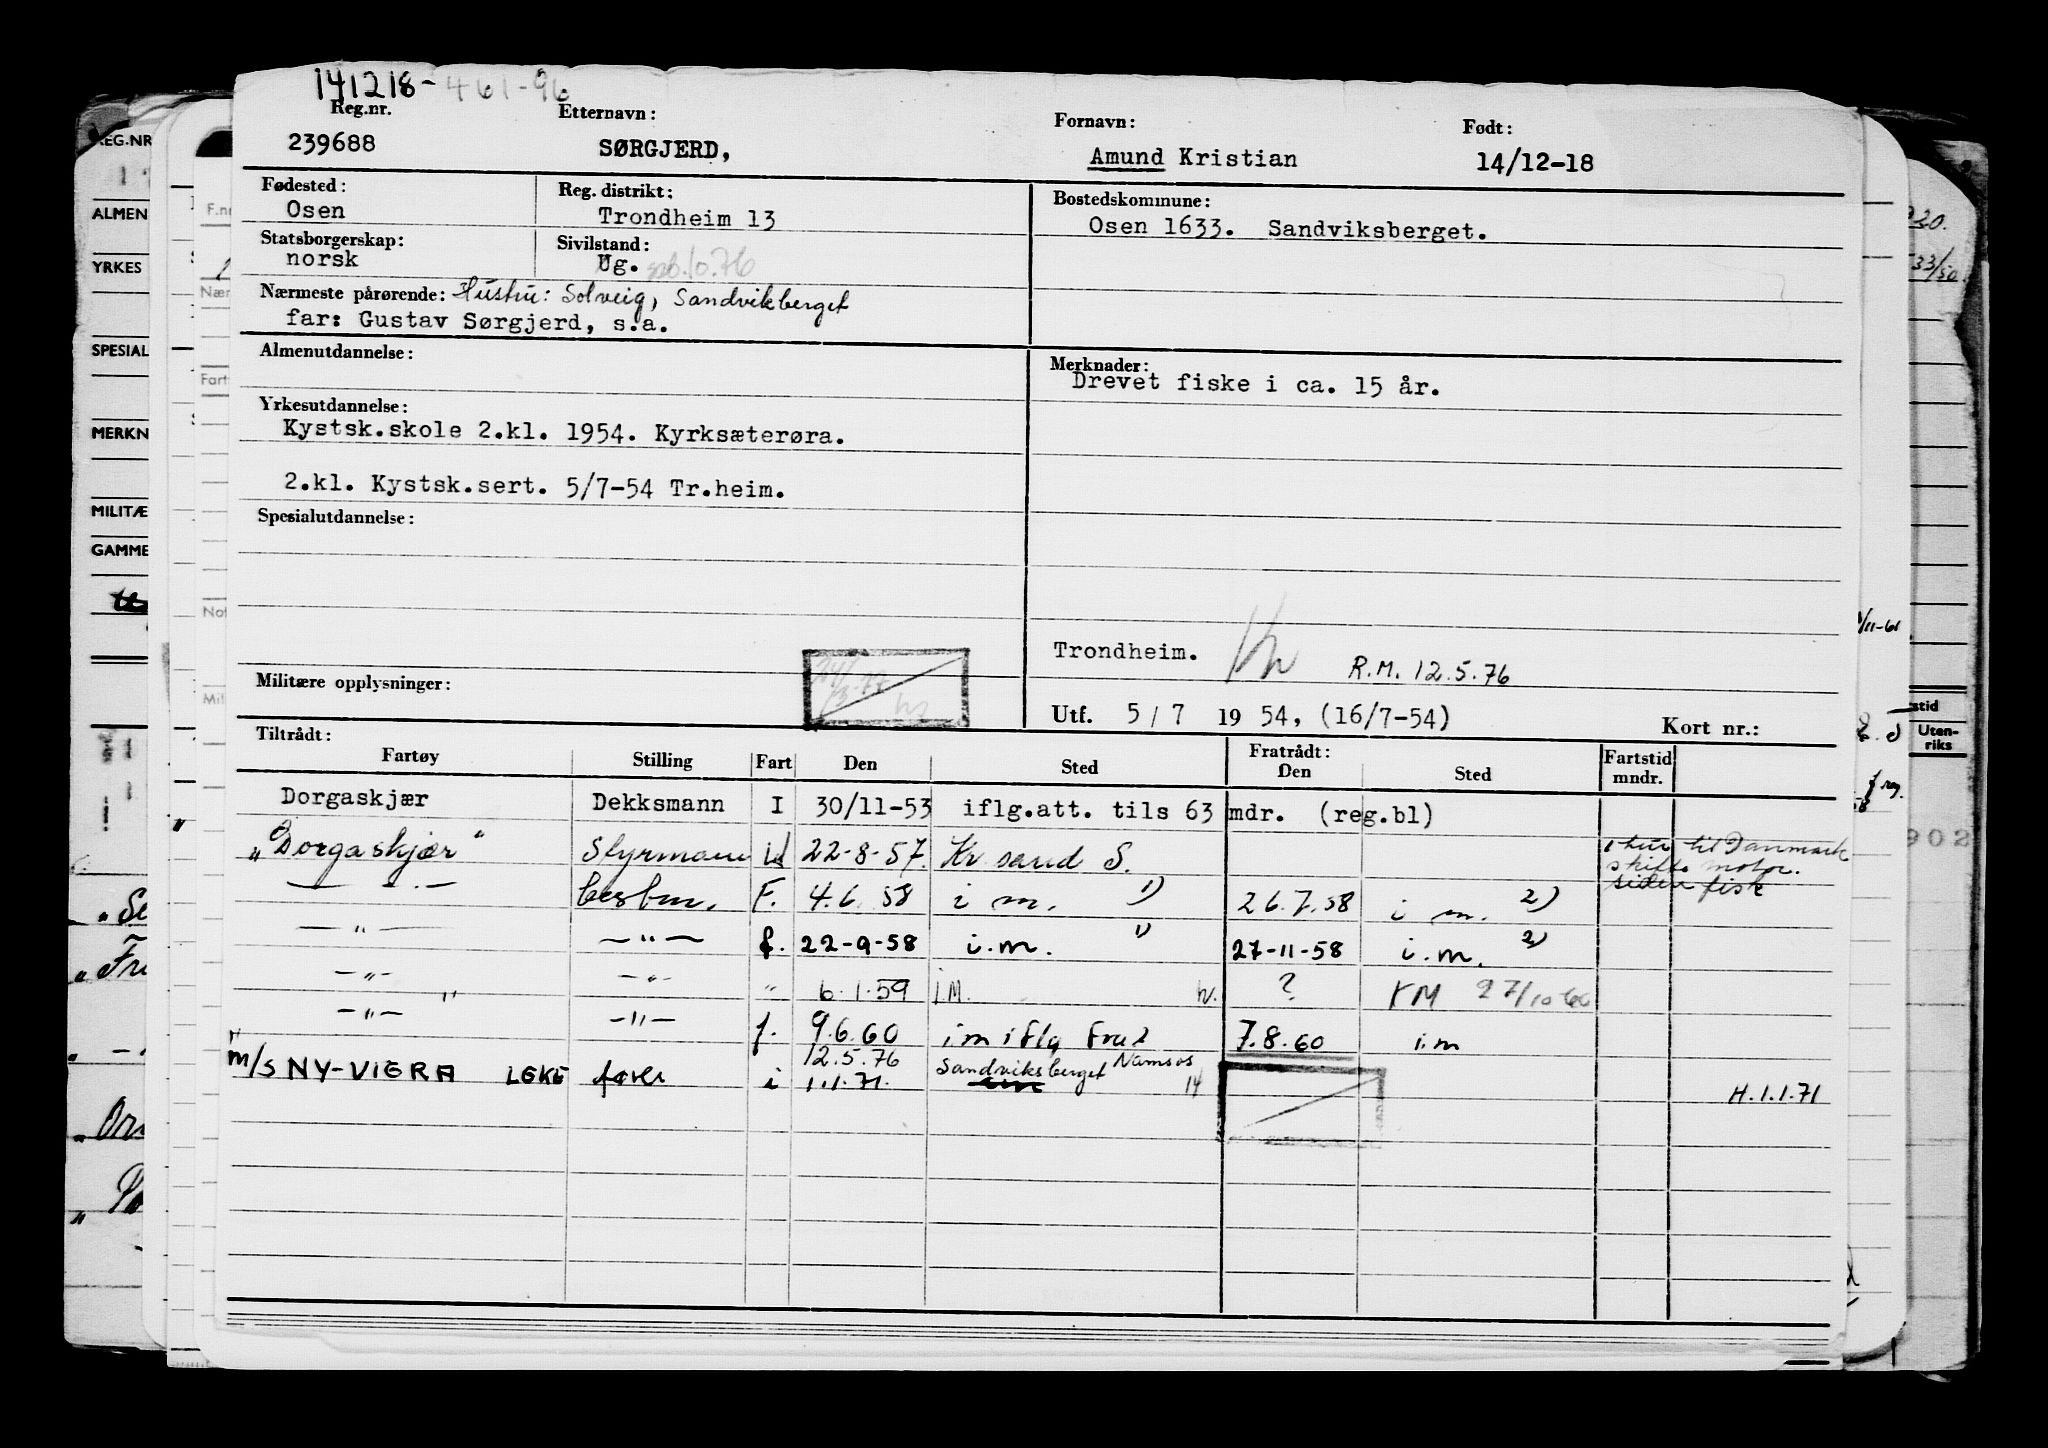 141218-461-96
Reg.nr. Etternavn: Fornavn: Født:
239688 SØRGJERD, Amund Kristian 14/12-18
Fødested: Reg. distrikt: Bostedskommune:
Osen Trondheim 13 Osen 1633. Sandviksberget.
Statsborgerskap: Sivilstand:
norsk Ug. 10.76
Nærmeste pårørende: Hustru: Solveig, Sandvikberget
far: Gustav Sørgjerd, s.a.
Almenutdannelse: Merknader:
Drevet fiske i ca. 15 år.
Yrkesutdannelse:
Kystsk.skole 2.kl. 1954. Kyrksæterøra.
2.kl. Kystsk.sert. 5/7-54 Tr.heim.
Spesialutdannelse:
Trondheim. R.M. 12.5.76
Militære opplysninger:
Utf. 5/7 1954, (16/7-54) Kort nr.:
Tiltrådt: Fratrådt:
Fartøy Stilling Fart Den Sted Den Sted Fartstid mndr.
Dorgaskjær Dekksmann I 30/11-53 iflg.att. tils 63 mdr. (reg.bl)
"Dorgaskjær" Styrmann U 22-8-57. Kr.sand S. i tur til Danmark
skifte motor.
siden fisk
— " — bestm. F. 4.6.58 i m. 1) 26.7.58 i m. 2)
— " — — " — f. 22-9-58 i.m. 1) 27-11-58 i.m. 2)
— " — — " — " 6.1.59 i.M. ? 27/10-60
— " — — " — f. 9.6.60 i m iflg 7.8.60 i.m
12.5.76 Sandviksberget Namsos
m/s NY-VIGRA LGKE i 1.1.71. 14 H.1.1.71
REG.NR
ALMEN
YRKES
SPESIAL
MERKN
MILITÆ
GAMME
F.nr
Nær
Fart
Not
Mil
920.
33/50
Uten-
riks
902